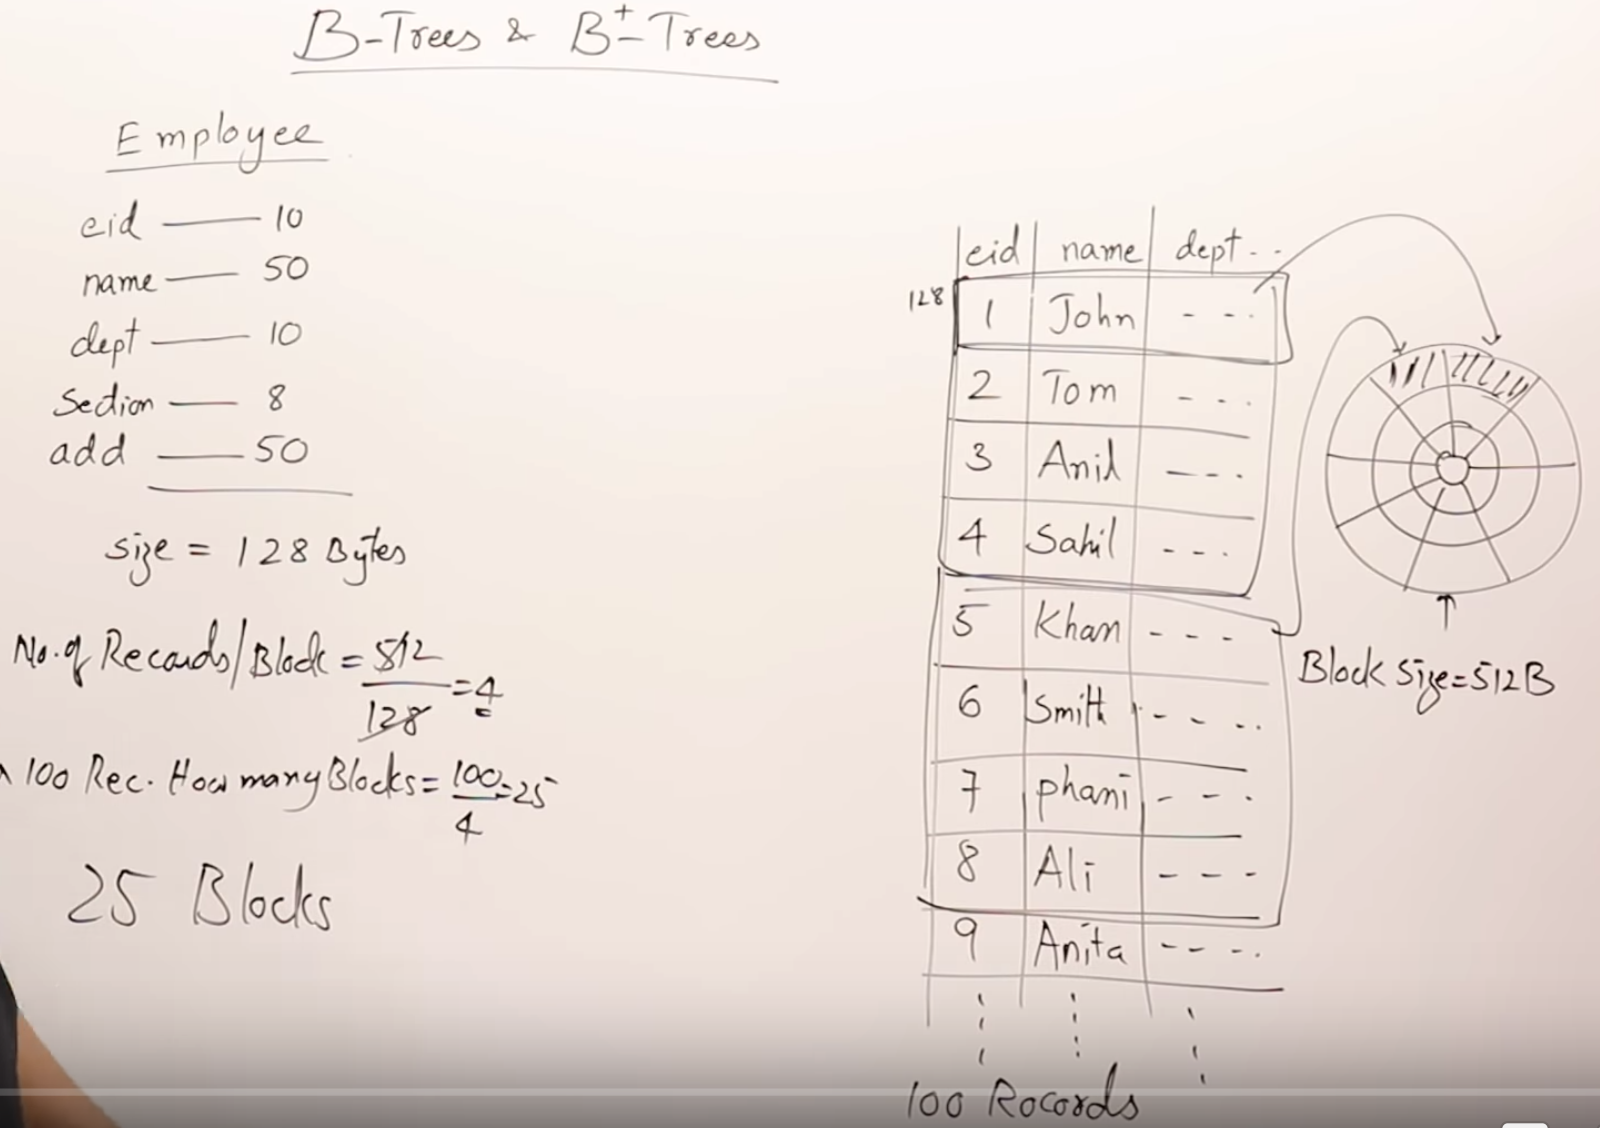 B-Trees & B+-Trees
Employee
eid — 10
name — 50
dept — 10
Section — 8
add — 50
size = 128 Bytes
No. of Records/Block = 512/128 = 4
100 Rec. How many Blocks = 100/4 = 25
25 Blocks
eid name dept ..
128
1 John - - -
2 Tom - - -
3 Anil - - -
4 Sahil - - -
5 Khan - - -
6 Smith - - - -
7 phani - - -
8 Ali - - -
9 Anita - - - -
100 Rocords
Block Size=512B